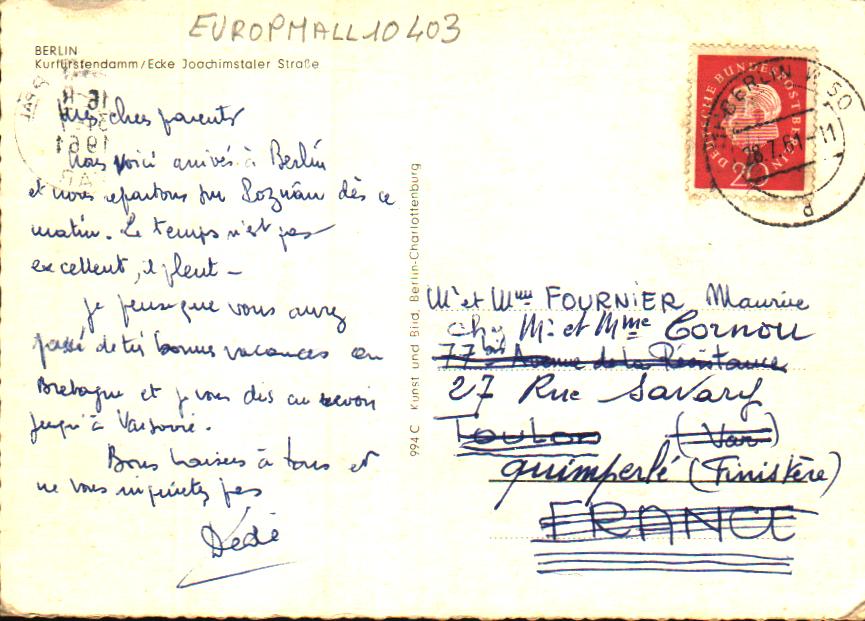 EUROPMALL10403
BERLIN
Kurfürstendamm/Ecke Joachimstaler Straße
Mes chers parents
Nous voici arrivés à Berlin
et nous repartons pour Poznan dès ce
matin. Le temps n'est pas
excellent, il pleut -
Je pense que vous aurez
passé de très bonnes vacances en
Bretagne et je vous dis au revoir
jusqu'à Varsovie.
Bons baisers à tous et
ne vous inquiétez pas
Dédé
994 C Kunst und Bild, Berlin-Charlottenburg
DEUTSCHE BUNDESPOST BERLIN
20
BERLIN SW
28.7.61-11
d
1961
Mr et Mme FOURNIER Maurice
chez Mr et Mme Cornou
77 bis Avenue de la Résistance
27 Rue Savary
Toulon (Var)
quimperlé (Finistère)
FRANCE